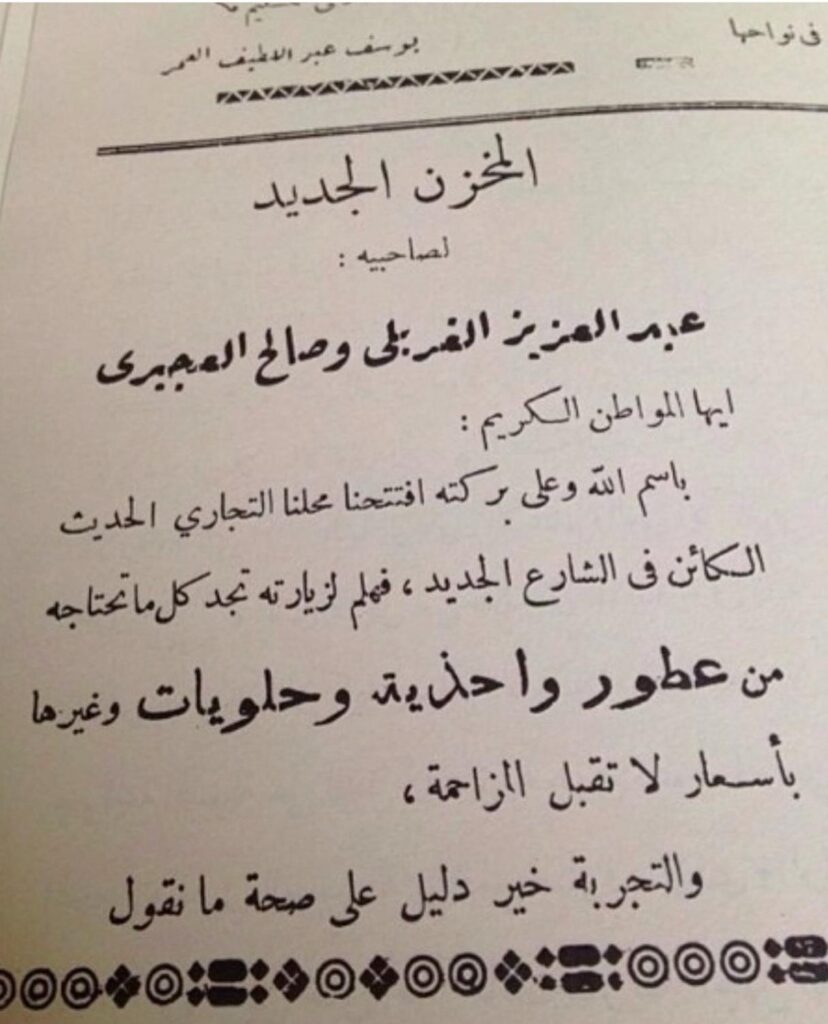 فى نواحيها
يوسف عبد اللطيف العمر
المخزن الجديد
لصاحبيه :
عبد العزيز الغربللى وصالح العجيرى
ايها المواطن الكريم :
باسم الله وعلى بركته افتتحنا محلنا التجاري الحديث
الكائن فى الشارع الجديد ، فهلم لزيارته تجد كل ما تحتاجه
من عطور واحذية وحلويات وغيرها
بأسعار لا تقبل المزاحمة ،
والتجربة خير دليل على صحة ما نقول